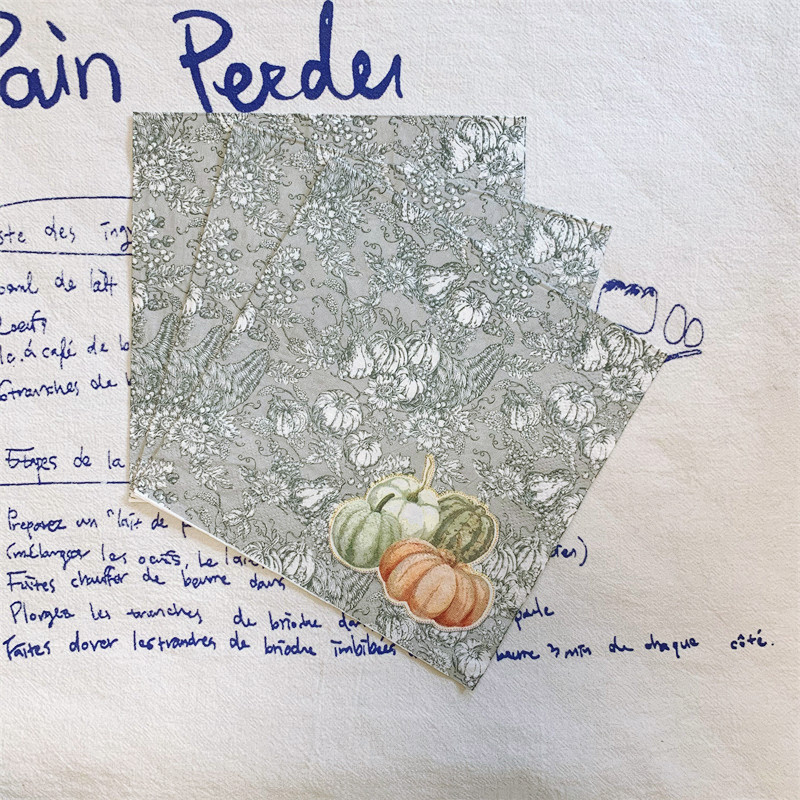 Pain Perdu
ste des ing
de lait
oeufs
c. à café de
tranches de
Etapes de la
Preparez un "lait de
(mélangez les oeufs, le lait
Faites chauffer de beurre dans
Plongez les tranches de brioche dan
Faites dorer les tranches de brioche imbibées beurre 3 min de chaque côté.